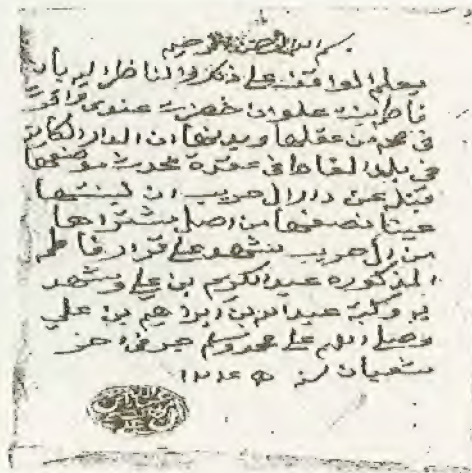 بسم الله الرحمن الرحيم
يعلم الواقف على ذكر والناظر اليه بان
فاطمة بنت علوان حضرت عندي واقرت
في صحة من عقلها وبدنها ان الدار الكاينة
في بلد القاط في عقدة
قبل عن دار ال حريب ان لبنتها
عيثا نصفها من اصل مشتراها
من ال حريب شهد على اقرار فاطمه
المذكوره عبد الكريم بن علي وشهد
به وكتبه عبد الله بن ابراهيم بن علي
وصلى الله على محمد وسلم حرر في اخر
شعبان سنة